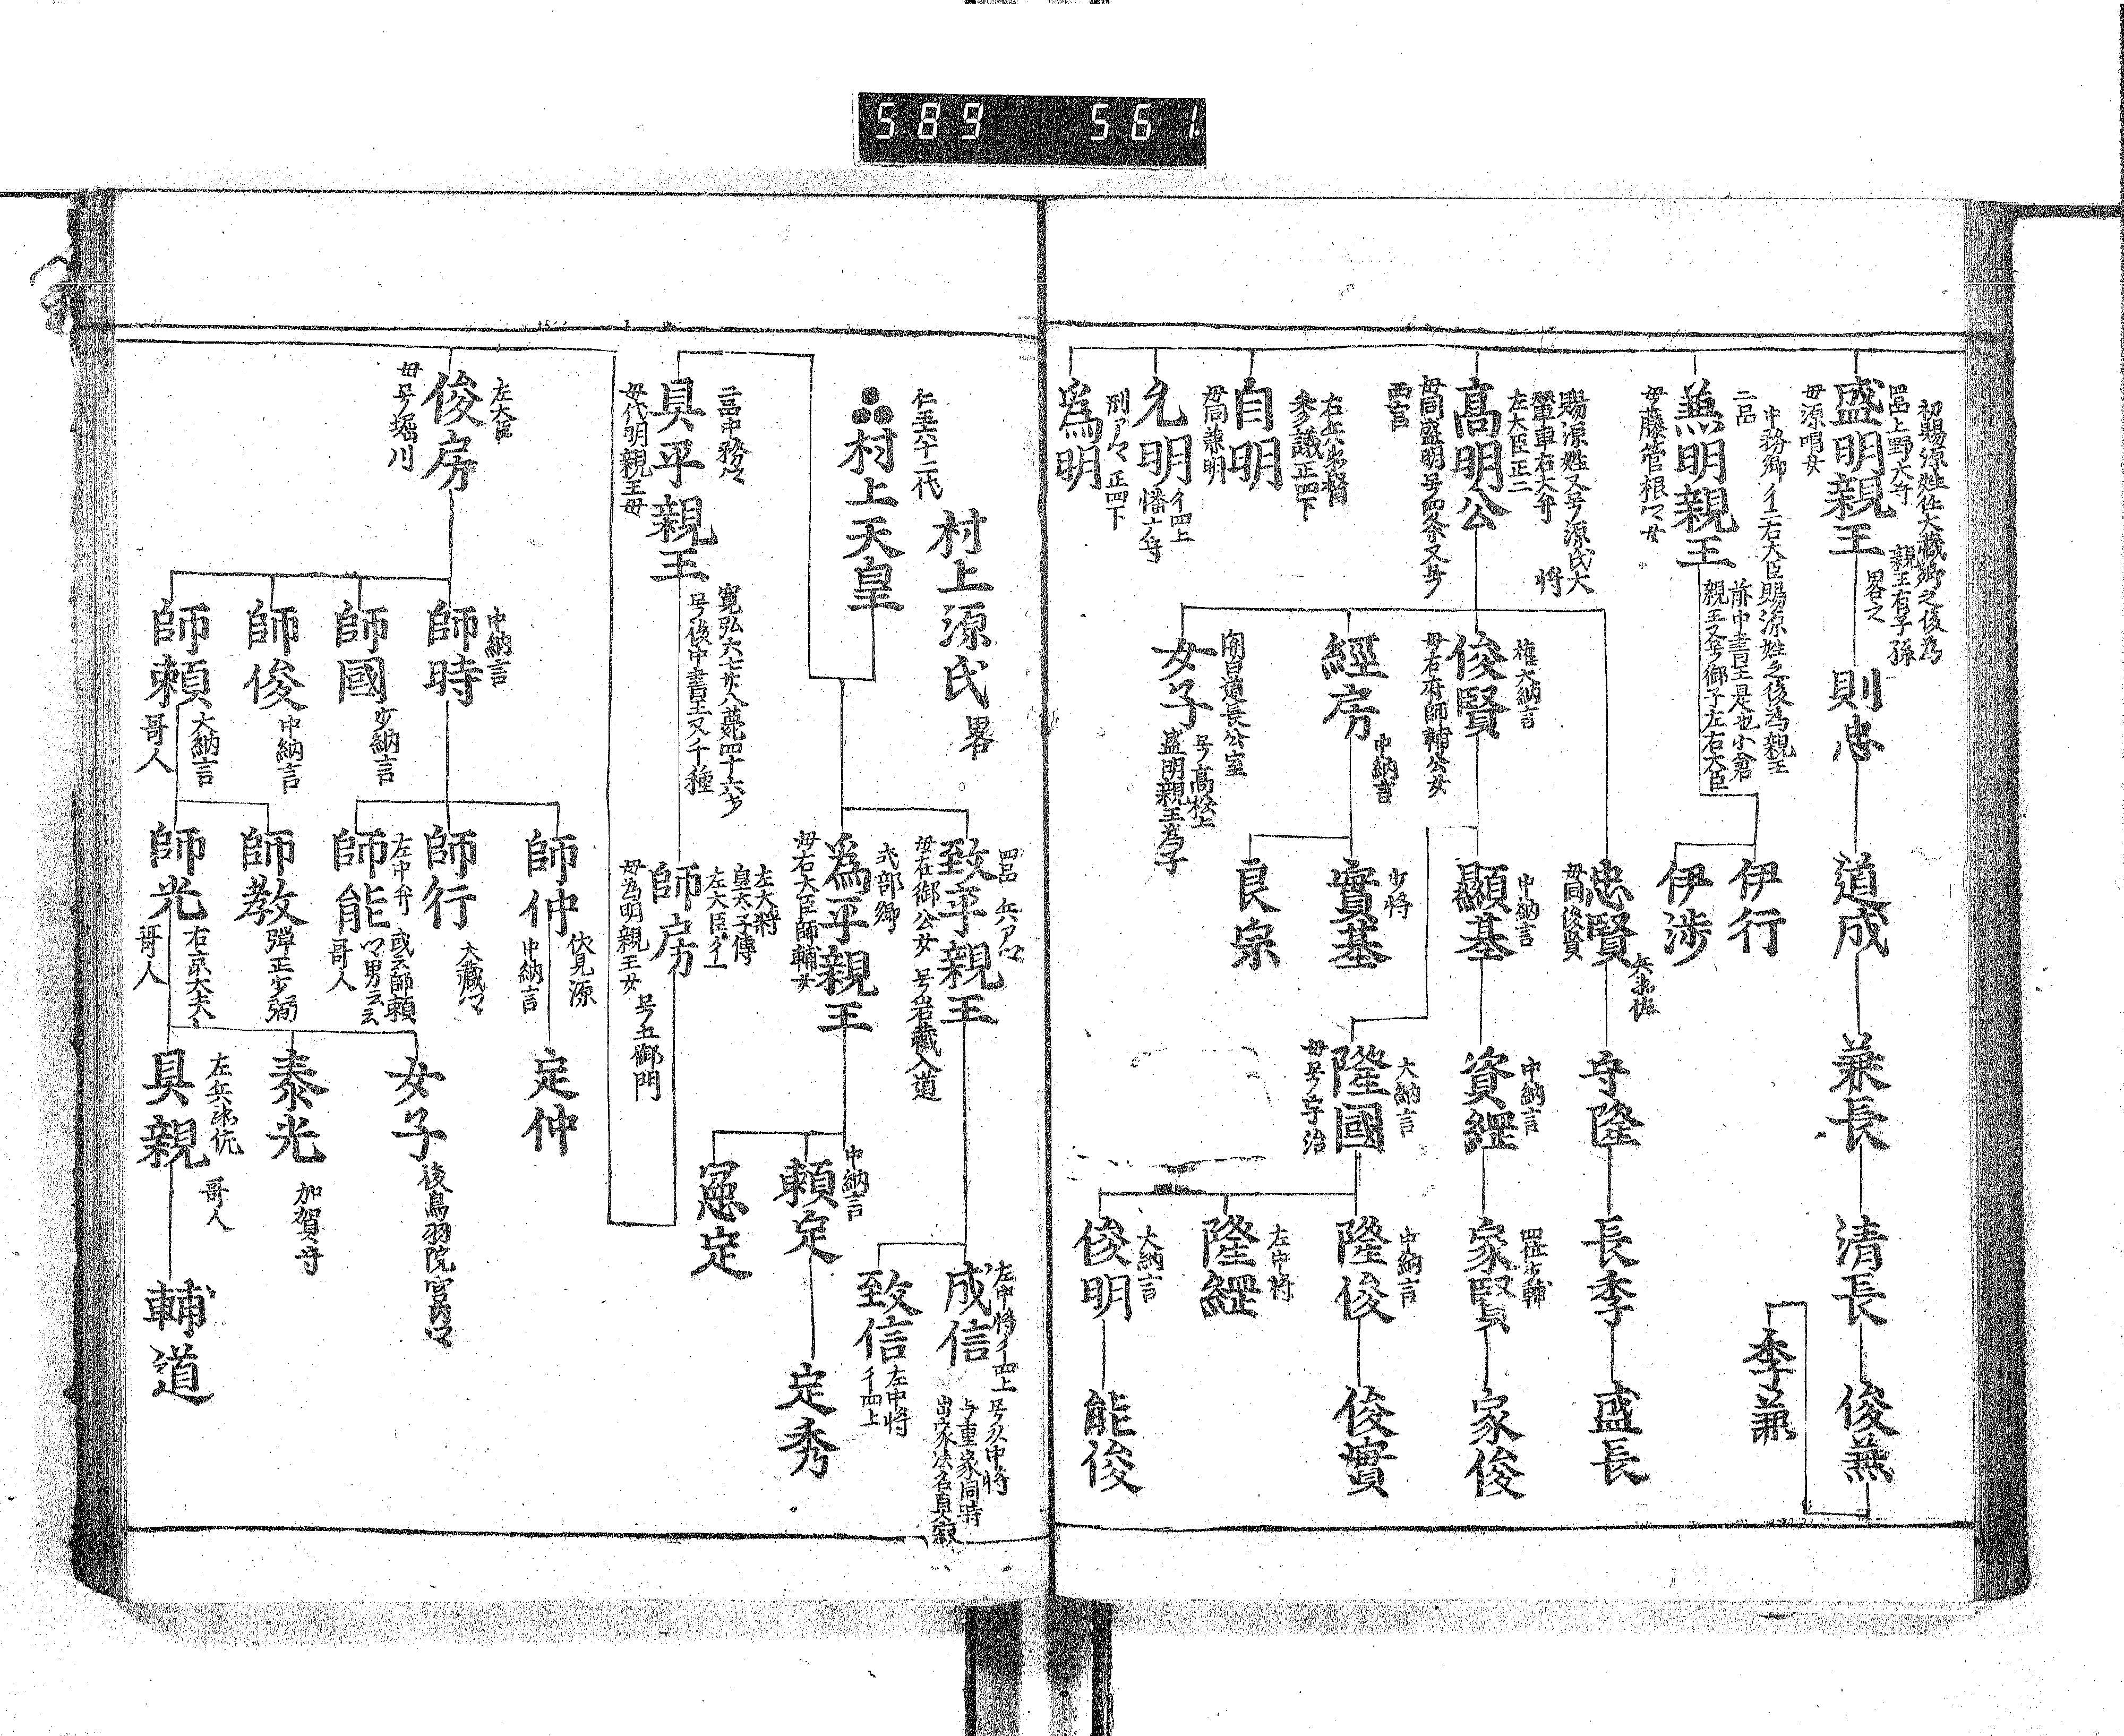 589 561
初賜源姓任大蔵卿之後為
親王有子孫
畧之
四品上野大守
盛明親王
母源唱女
則忠
道成
兼長
清長
俊兼
季兼
中務卿イ二右大臣賜源姓之後為親王
前中書王是也小倉
親王又号御子左右大臣
二品
兼明親王
母藤菅根〻女
伊行
伊渉
賜源姓又号源氏大
将
輦車右大弁
左大臣正二
高明公
母同盛明号四条又号
西宮
忠賢
兵衛佐
母同俊賢
守隆
長季
盛長
権大納言
俊賢
母右府師輔公女
中納言
顯基
中納言
資綱
四位少輔
家賢
家俊
大納言
隆國
母号宇治
中納言
隆俊
俊實
左中将
隆綱
大納言
俊明
能俊
經房
中納言
少将
實基
良宗
関白道長公室
女子
号高松上
盛明親王為子
右兵衛督
参議正四下
自明
母同兼明
允明
イ四上
幡广守
刑ア〻正四下
為明
村上源氏
畧
仁王六十二代
村上天皇
四品兵ア〻
致平親王
母在御公女 号岩蔵入道
左中将イ四上
成信
号又中将
与重家同時
出家法名真寂
致信
左中将
イ四上
式部卿
為平親王
母右大臣師輔女
中納言
頼定
定秀
寔定
二品中務〻
具平親王
母代明親王母
寛弘六七廿八薨四十六才
号後中書王又千種
左大将
皇太子傅
左大臣イ二
師房
母為明親王女
号土御門
左大臣
俊房
母号堀川
中納言
師時
伏見源
師仲
中納言
定仲
師行
大蔵〻
左中弁
師能
或云師頼
〻男云云
哥人
師國
少納言
師俊
中納言
師頼
大納言
哥人
師教
弾正少弼
師光
右京大夫
哥人
女子
後鳥羽院宮内〻
泰光
加賀守
左兵衛佐
具親
哥人
輔道